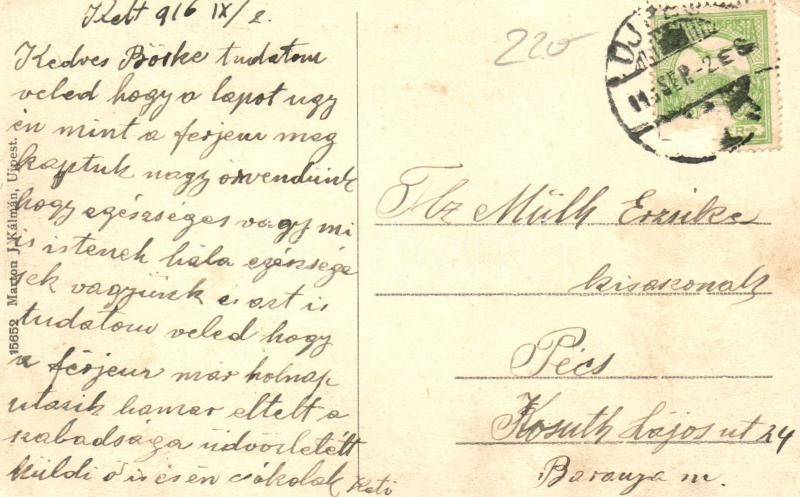 Kelt 916 IX/2.
Kedves Böske tudatom
veled hogy a lapot ugy
én mint a férjem meg
kaptuk nagy örvendünk
hogy egészséges vagy mi
is istenek hála egéssége
sek vagyunk és azt is
tudatom veled hogy
a férjem már holnap
utazik hamar eltelt a
szabadsága üdvözletét
küldi ő is és én csókolak
Kató
15652 Marton J. Kálmán, Ujpest.
220
UJ
SEP.-2
Müth Erzsike
kisasonak
Pécs
Kosuth Lajos ut 24
Baranya m.